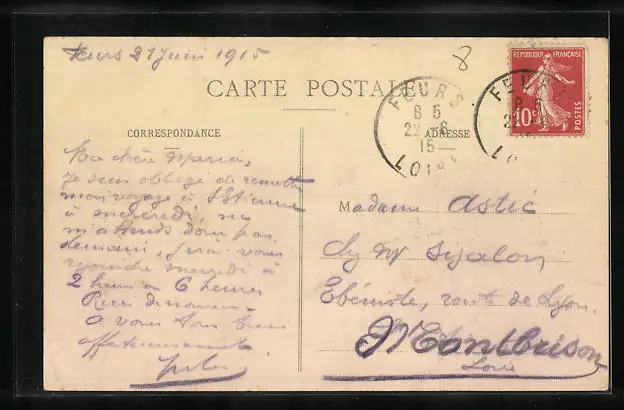 Feurs 21 Juin 1915
8
CARTE POSTALE
CORRESPONDANCE
ADRESSE
FEURS
8 5
22 -6
15
LOIRE
FEURS
8 5
22
LO
REPUBLIQUE FRANÇAISE
10c
POSTES
Ma chère Maria,
Je suis obligé de remettre
mon voyage à St Etienne
à mercredi, ne
m'attends donc pas
demain, j'irai vous
rejoindre mercredi à
2 heures ou 6 heures
Rien de nouveau
A vous tous bien
affectueusement
Jules
Madame Astic
Ebéniste, route de Lyon
Montbrison
Loire